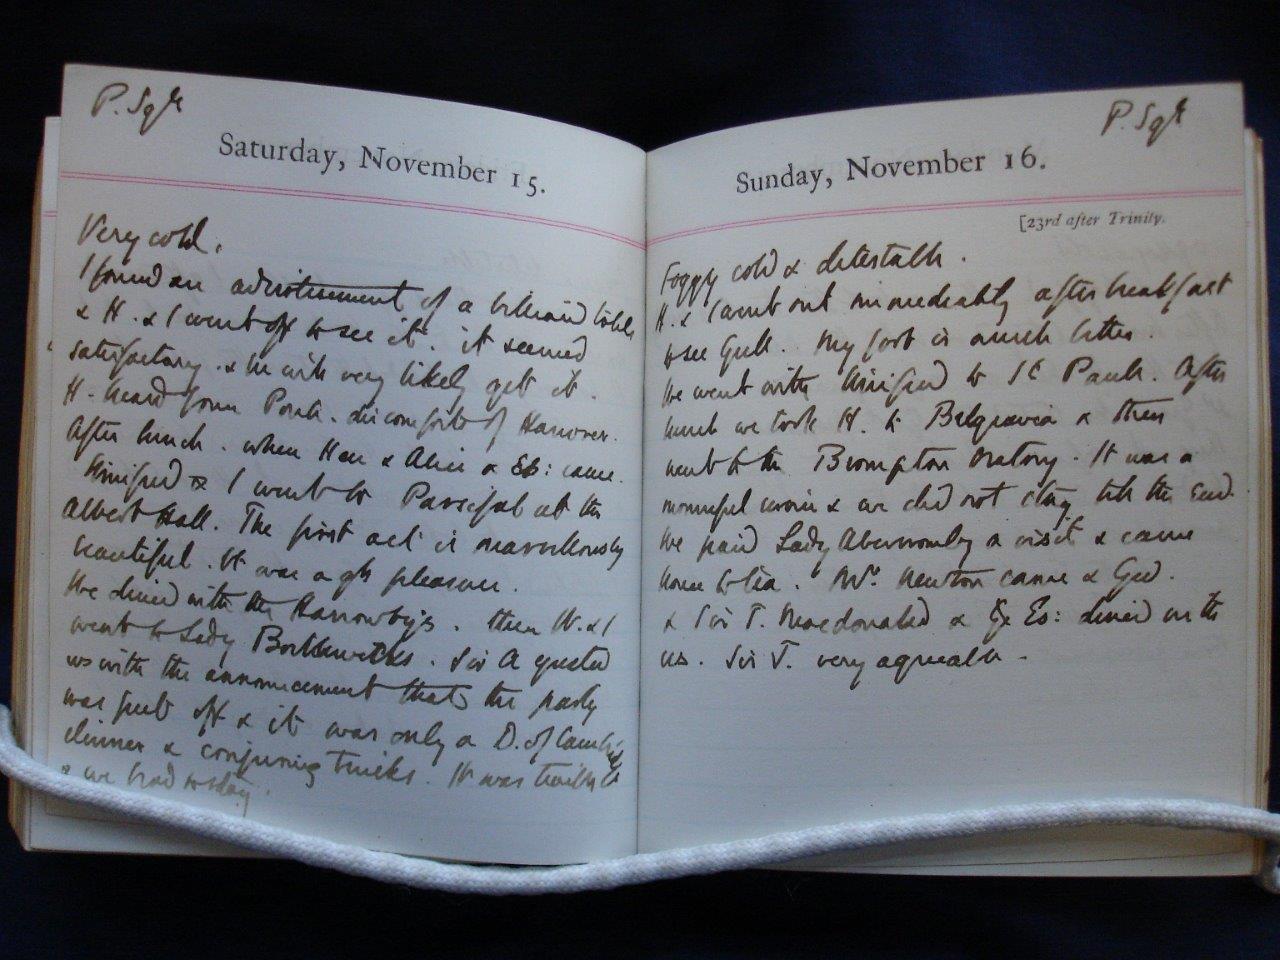 P. Sqre
Saturday, November 15.
Very cold.
I found an advertisement of a billiard table
& H. & I went off to see it. it seemed
satisfactory. & he will very likely get it.
H. heard from Ponk. discomforts of Hanover.
After lunch. when Hen & Alice & Es: came.
Winifred & I went to Parsifal at the
Albert Hall. The first act is marvellously
beautiful. It was a gt pleasure.
We dined with the Harrowbys. then W. & I
went to Lady Borthwicks. Sir A greeted
us with the announcement that the party
was put off & it was only a D. of Cambridge
dinner & conjuring tricks. It was terrible
& we had to stay.
P. Sqre
Sunday, November 16.
[23rd after Trinity.
Foggy cold & detestable.
H. & I went out immediately after breakfast
to see Gull. My foot is much better.
We went with Winifred to St Pauls. After
lunch we took H. to Belgravia & then
went to the Brompton Oratory. It was a
mournful service & we did not stay till the End.
We paid Lady Abercromby a visit & came
home to tea. Mr. Newton came & Ged.
& Sir T. Macdonald & Es: dined with
us. Sir J. very agreeable.